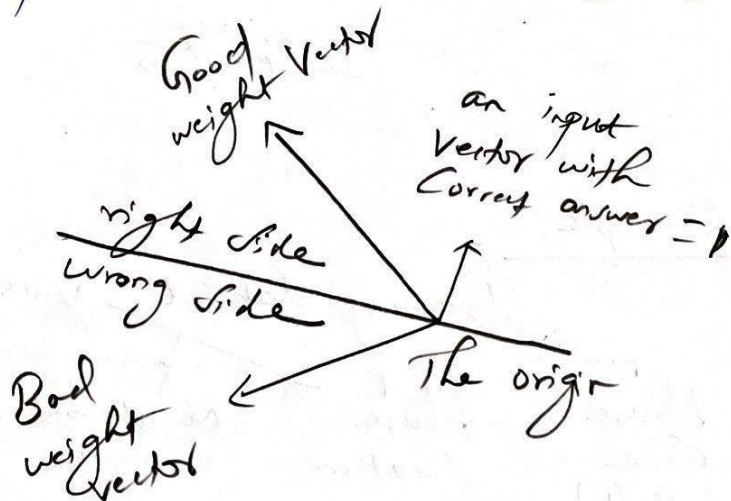 Good
weight Vector
an input
Vector with
Correct answer = 1
right side
wrong side
The origin
Bad
weight
vector